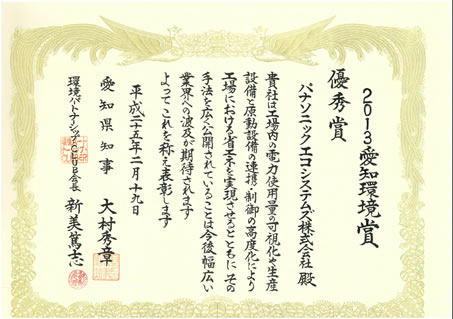 2013愛知環境賞
優秀賞
パナソニックエコシステムズ株式会社 殿
貴社は工場内の電力使用量の可視化や生産
設備と原動設備の連携・制御の高度化により
工場における省エネを実現させるとともにその
手法を広く公開されていることは今後幅広い
業界への波及が期待されます
よってこれを称え表彰します
平成二十五年二月十九日
愛知県知事 大村秀章
環境パートナーシップ・CLUB会長 新美篤志